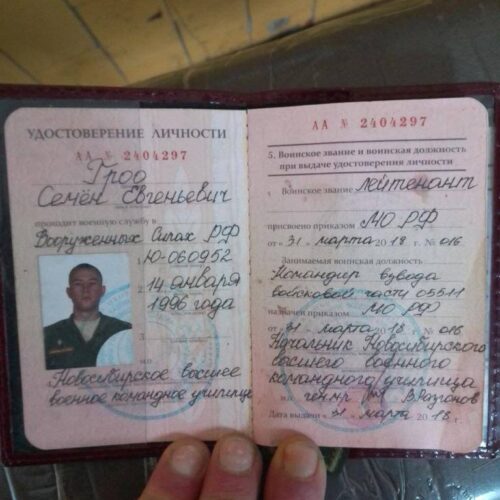 УДОСТОВЕРЕНИЕ ЛИЧНОСТИ
АА № 2404297
Гроо
Семён Евгеньевич
проходит военную службу в
Вооруженных Силах РФ
1. Ю-060952
2. 14 января
1996 года
3.
М.П.
Новосибирское высшее
военное командное училище
АА № 2404297
5. Воинское звание и воинская должность
при выдаче удостоверения личности
Воинское звание лейтенант
присвоено приказом МО РФ
от «31» марта 2018 г. № 016
Занимаемая воинская должность
Командир взвода
войсковой части 05511
назначен приказом МО РФ
от «31» марта 2018 г. № 016
Начальник Новосибирского
высшего военного
командного училища
М.П. ген-м-р
Дата выдачи «31» марта 2018 г.